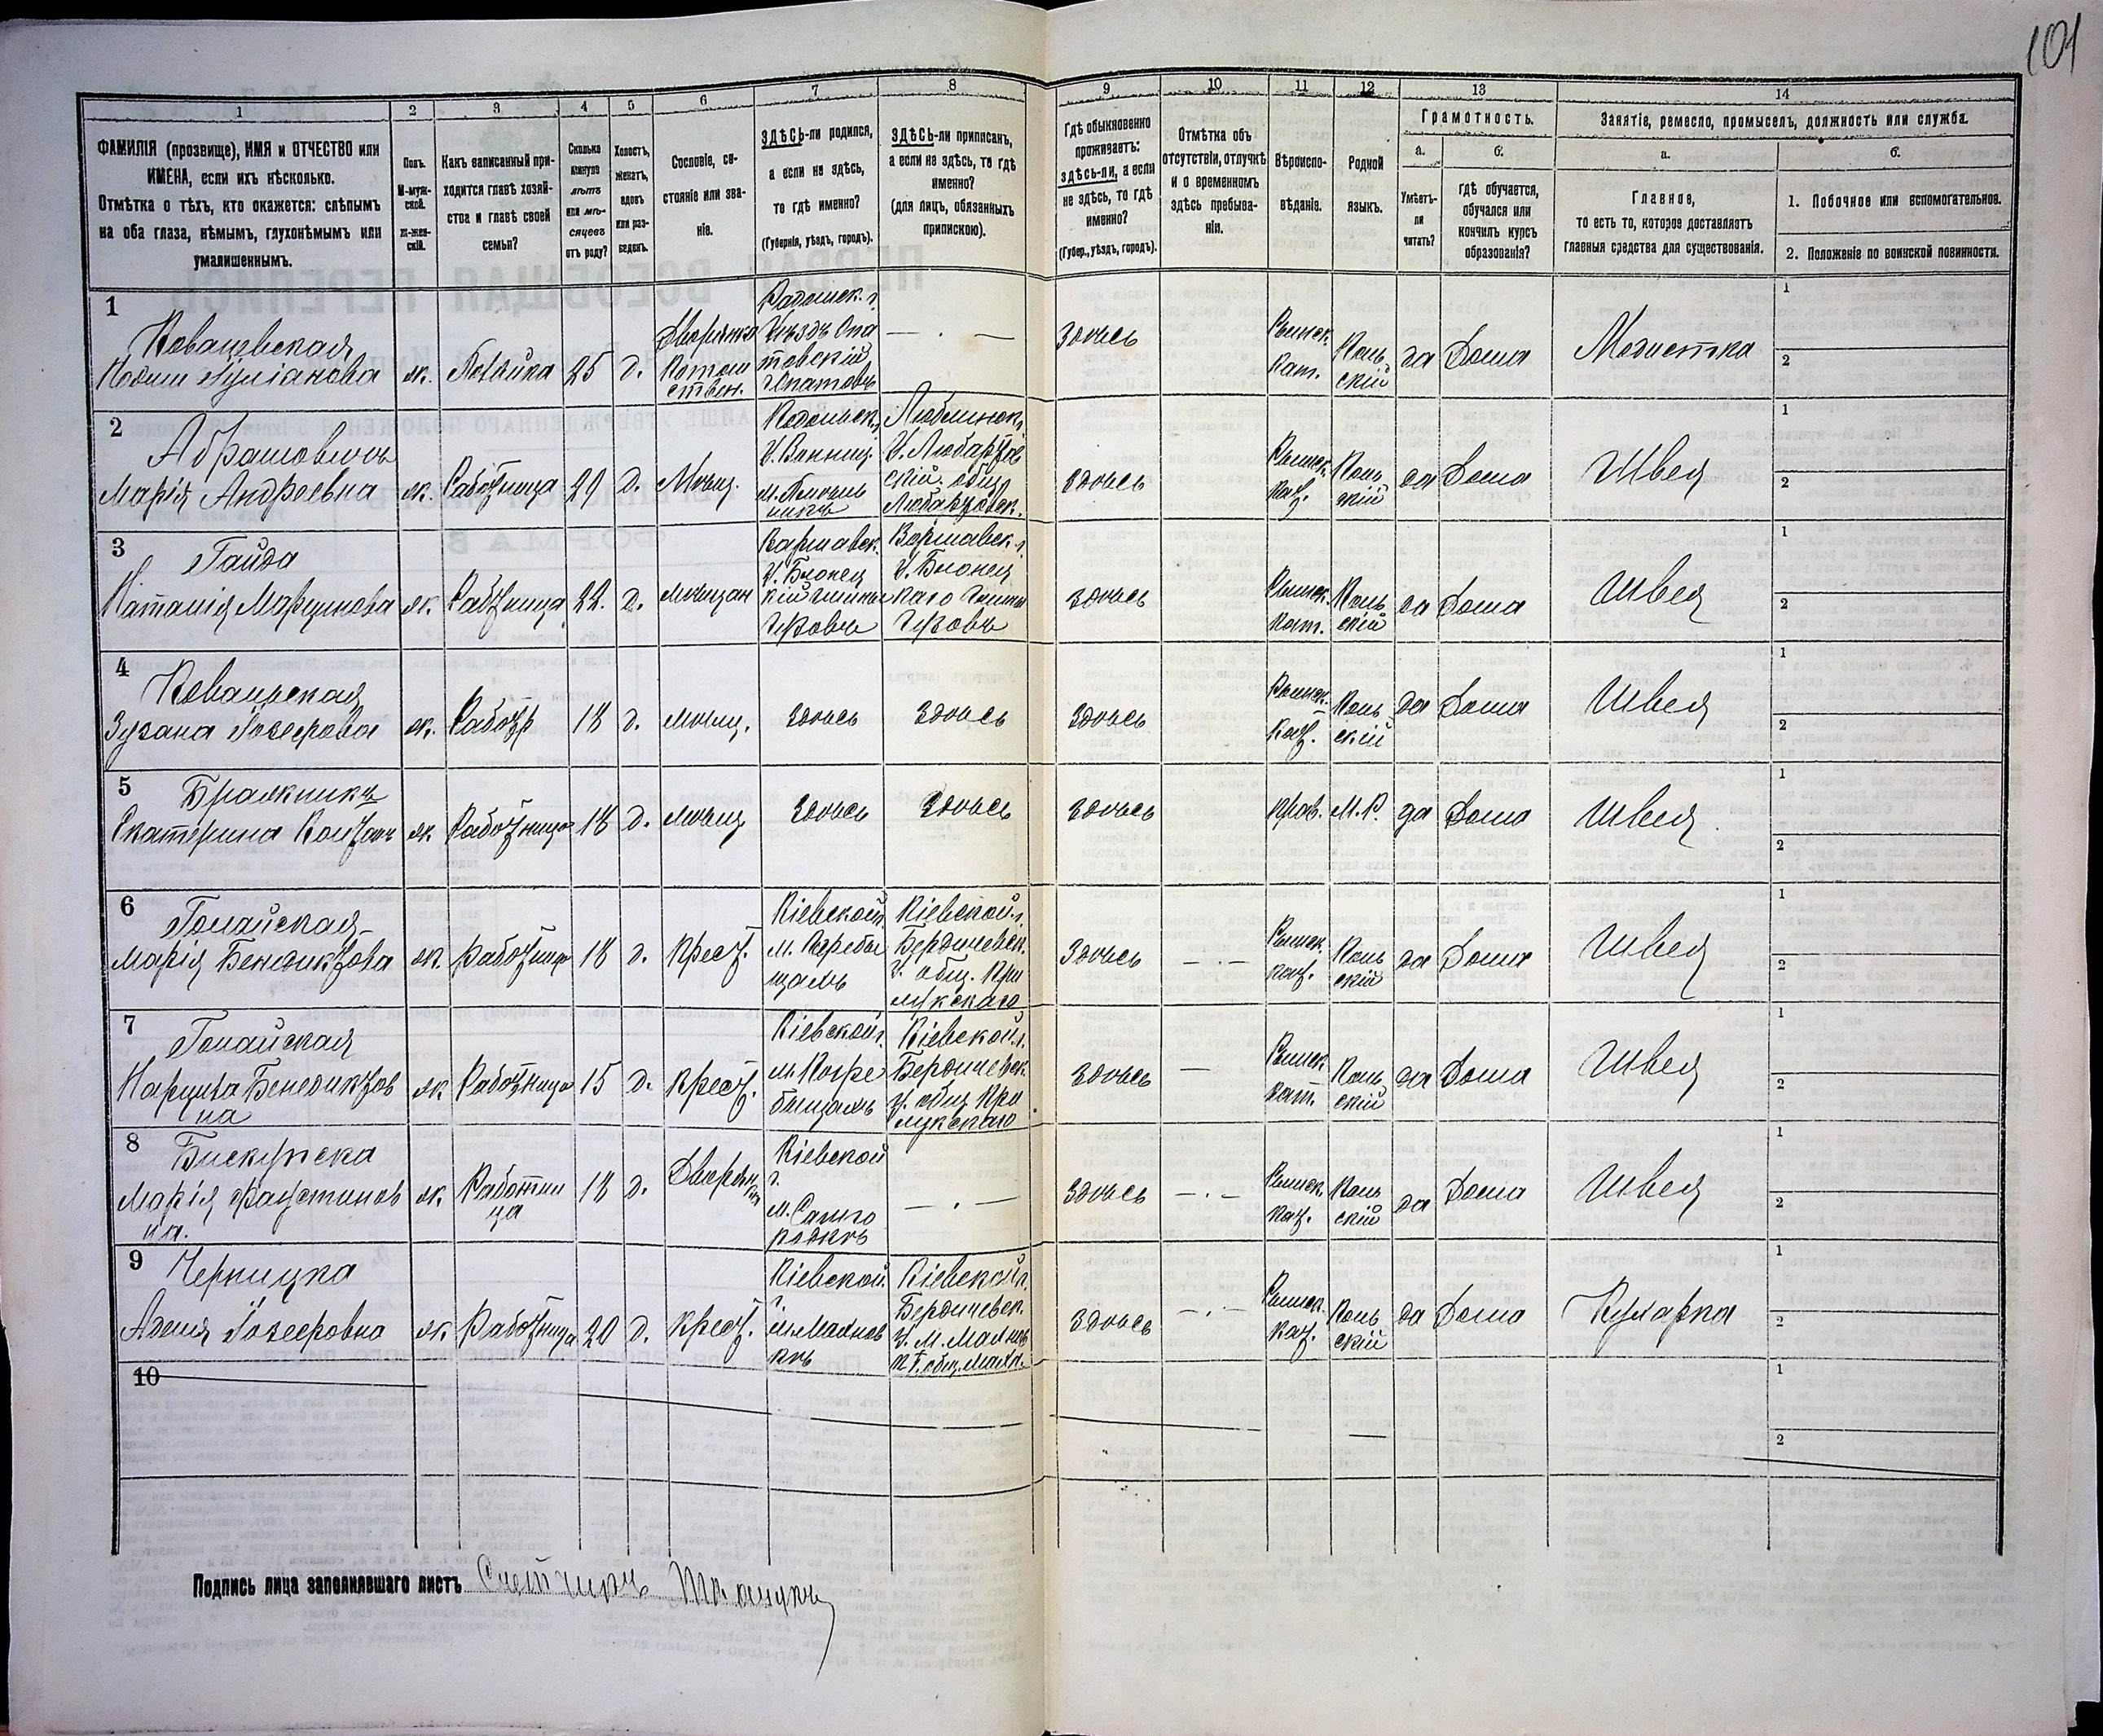 101
1 2 3 4 5 6 7 8 9 10 11 12 13 14
ФАМИЛІЯ (прозвище), ИМЯ и ОТЧЕСТВО или
ИМЕНА, если ихъ нѣсколько.
Отмѣтка о тѣхъ, кто окажется: слѣпымъ
на оба глаза, нѣмымъ, глухонѣмымъ или
умалишеннымъ.
Полъ.
М-муж-
ской.
Ж-жен-
скій.
Какъ записанный при-
ходится главѣ хозяй-
ства и главѣ своей
семьи?
Сколько
минуло
лѣтъ
или мѣ-
сяцевъ
отъ роду?
Холостъ,
женатъ,
вдовъ
или раз-
веденъ.
Сословіе, со-
стояніе или зва-
ніе.
ЗДѢСЬ-ли родился,
а если не здѣсь,
то гдѣ именно?
(Губернія, уѣздъ, городъ).
ЗДѢСЬ-ли приписанъ,
а если не здѣсь, то гдѣ
именно?
(для лицъ, обязанныхъ
припискою).
Гдѣ обыкновенно
проживаетъ:
здѣсь-ли, а если
не здѣсь, то гдѣ
именно?
(Губер., уѣздъ, городъ).
Отмѣтка объ
отсутствіи, отлучкѣ
и о временномъ
здѣсь пребыва-
ніи.
Вѣроиспо-
вѣданіе.
Родной
языкъ.
Грамотность.
а.
Умѣетъ-
ли
читать?
б.
гдѣ обучается,
обучался или
кончилъ курсъ
образованія?
Занятіе, ремесло, промыселъ, должность или служба.
а.
Главное,
то есть то, которое доставляетъ
главныя средства для существованія.
б.
1. Побочное или вспомогательное.
2. Положеніе по воинской повинности.
1
Ковалевская
ж. 25 д.
Дворянка
Потом
ствен.
Радомск. г.
Уѣздъ Опа
товскій
г. Опатовъ
здѣсь
Римск.
Кат.
Поль
скій
да Дома Модистка
1
2
2
Абрамовичъ
Марія Андреевна ж. Работница 29 д. Мѣщ.
Подольск.
У. Винниц.
Люблинск.
У. Любартов
скій. общ.
Любартовск.
здѣсь
Римск.
Кат.
Поль
скій
да Дома Швея
1
2
3
Гайда
Наталія ж. Работница 22. д. Мѣщан
Варшавск.
У. Блонск
Варшавск. г.
У. Блонск
здѣсь
Римск.
Кат.
Поль
скій
да Дома Швея
1
2
4
Зузана Іозефова ж. Работ 18 д. Мѣщ. здѣсь здѣсь здѣсь
Римск.
Кат.
Поль
скій
да Дома Швея
1
2
5
Екатерина ж. Работница 18 д. Мѣщ здѣсь здѣсь здѣсь прав. М.Р. да Дома Швея
1
2
6
Марія Бенедиктова ж. работница 18 д. Крест.
Кіевской
м. Погребы
щамъ
Кіевской г.
Бердичевск.
У. общ. При
лукскаго
здѣсь
Римск.
кат.
Поль
скій
да Дома Швея
1
2
7
Нарциза Бенедиктов
на
ж. Работница 15 д. Крест.
Кіевской г.
м. Погре
бищамъ
Кіевской г.
Бердичевск.
У. общ. При
лукскаго
здѣсь
Римск
кат.
Поль
скій
да Дома Швея
1
2
8
Бискупска
Марія Фаустинов
на.
ж.
Работни
ца
18 д.
Дворян
ка
Кіевской
г.
м. Самго
родкѣ
здѣсь
Римск.
кат.
Поль
скій
да Дома Швея
1
2
9
Черницка
Аделя Іозефовна ж. Работница 20 д. Крест.
Кіевской
г.
м. Махнов
кѣ
Кіевской г.
Бердичевск.
У. М. Махнов
здѣсь
Римск.
Кат.
Поль
скій
да Дома Кухарка
1
2
10
1
2
Подпись лица заполнявшаго листъ Счетчикъ